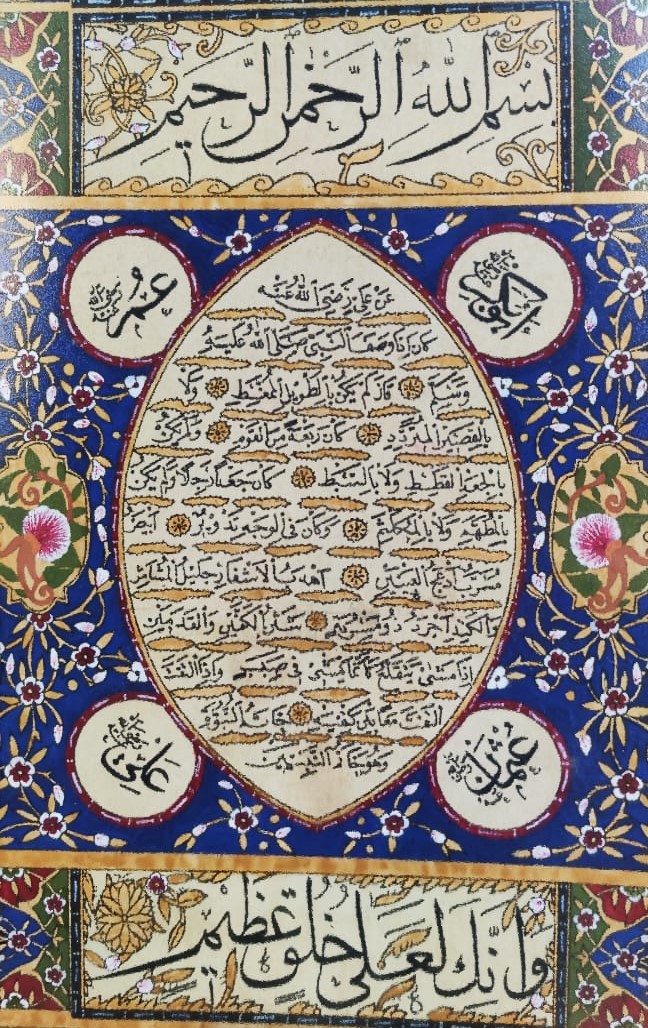 بسم الله الرحمن الرحيم
ابو بكر رضي الله عنه
عمر رضي الله عنه
عن علي رضي الله عنه
كان اذا وصف النبي صلى الله عليه
وسلم قال لم يكن بالطويل الممغط ولا
بالقصير المتردد كان ربعة من القوم ولم يكن
بالجعد القطط ولا بالسبط كان جعدا رجلا ولم يكن
بالمطهم ولا بالمكلثم وكان في الوجه تدوير ابيض
مشرب ادعج العينين اهدب الاشفار جليل المشاش
والكتد اجرد ذو مسربة شثن الكفين والقدمين
اذا مشى يتقلع كأنما يمشي في صبب واذا التفت
التفت معا بين كتفيه خاتم النبوة
وهو خاتم النبيين
عثمان رضي الله عنه
علي رضي الله عنه
وانك لعلى خلق عظيم